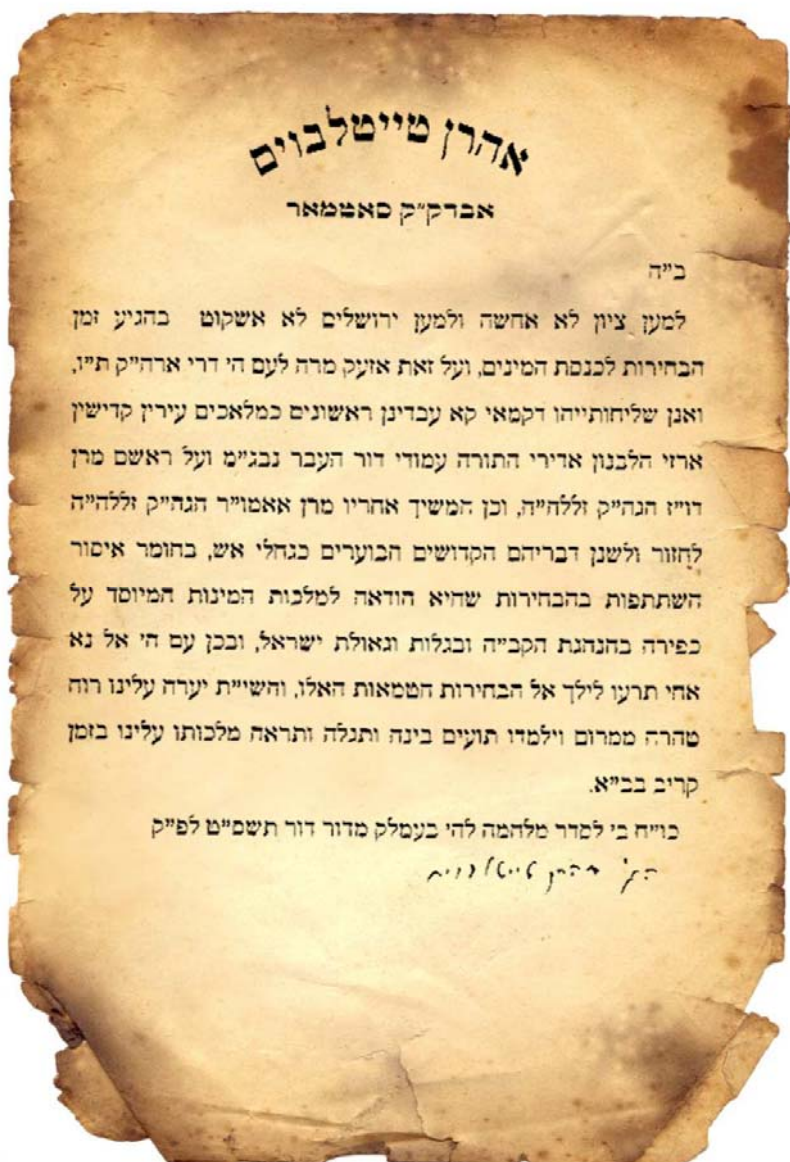 אהרן טייטלבוים
אבדק״ק סאטמאר
ב״ה
למען ציון לא אחשה ולמען ירושלים לא אשקוט בהגיע זמן
הבחירות לכנסת המינים, ועל זאת אזעק מרה לעם ה׳ דרי ארה״ק ת״ו,
ואנן שליחותייהו דקמאי קא עבדינן ראשונים כמלאכים עירין קדישין
ארזי הלבנון אדירי התורה עמודי דור העבר נבג״מ ועל ראשם מרן
דו״ז הגה״ק זללה״ה, וכן המשיך אחריו מרן אאמו״ר הגה״ק זללה״ה
לחזור ולשנן דבריהם הקדושים הבוערים כגחלי אש, בחומר איסור
השתתפות בהבחירות שהיא הודאה למלכות המינות המיוסד על
כפירה בהנהגת הקב״ה ובגלות וגאולת ישראל, ובכן עם ה׳ אל נא
אחי תרעו לילך אל הבחירות הטמאות האלו, והשי״ת יערה עלינו רוח
טהרה ממרום וילמדו תועים בינה ותגלה ותראה מלכותו עלינו בזמן
קריב בב״א.
כו״ח ב׳ לסדר מלחמה לה׳ בעמלק מדור דור תשס״ט לפ״ק
הק׳ אהרן טייטלבוים